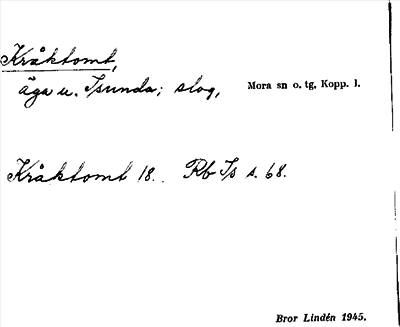 Kråktomt,
äga u. Isunda; slog, Mora sn o. tg, Kopp. l.
Kråktomt 18. Rb Is s. 68.
Bror Lindén 1945.